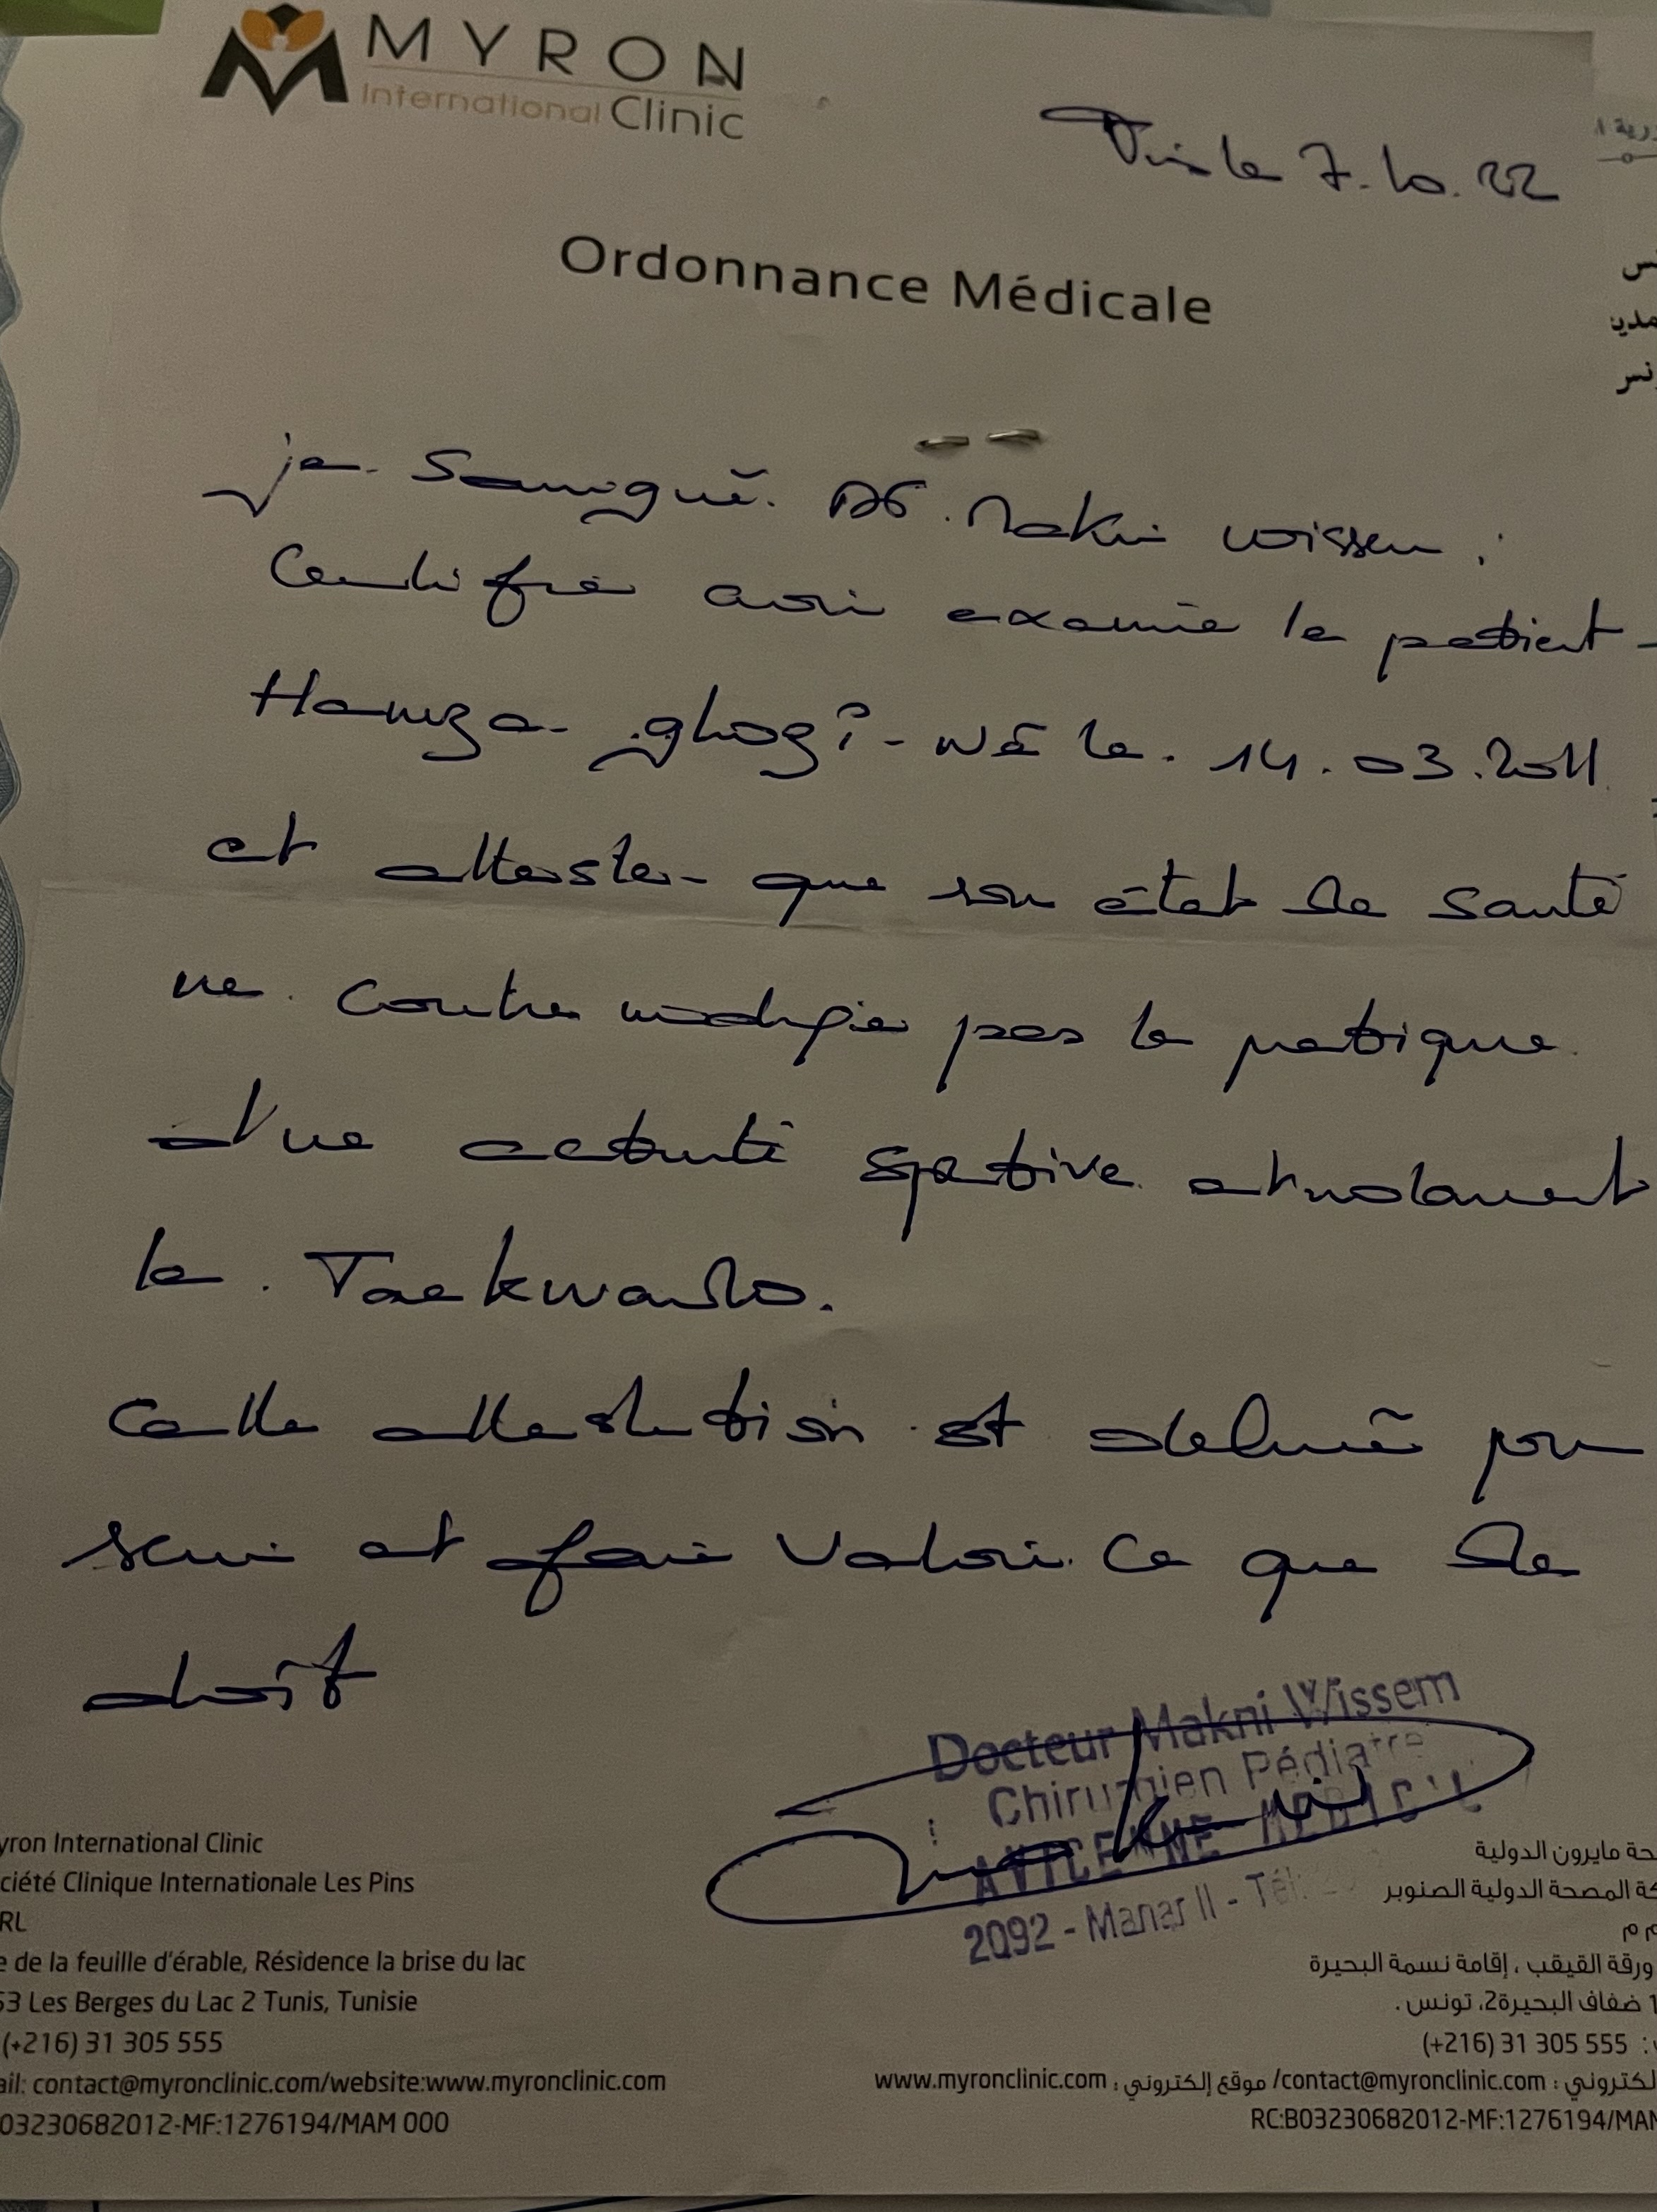 MYRON
International Clinic
Tunis le 7.10.22
Ordonnance Médicale
je soussigné. Dr. Makni Wissem :
Certifie avoir examiné le patient
Hamza ghozi - Né le. 14.03.2011
et atteste que son état de santé
ne contre indique pas la pratique
d'une activité sportive et notamment
le Taekwondo.
Cette attestation est délivrée pour
servir et faire valoir ce que de
droit
Docteur Makni Wissem
Chirurgien Pédiatre
AVICENNE MEDICAL
2092 - Manar II - Tél:
yron International Clinic
ciété Clinique Internationale Les Pins
RL
e de la feuille d'érable, Résidence la brise du lac
53 Les Berges du Lac 2 Tunis, Tunisie
(+216) 31 305 555
ail: contact@myronclinic.com/website:www.myronclinic.com
03230682012-MF:1276194/MAM 000
حة مايرون الدولية
كة المصحة الدولية الصنوبر
م م
ورقة القيقب ، إقامة نسمة البحيرة
1 ضفاف البحيرة2، تونس .
(+216) 31 305 555 :
لكتروني : contact@myronclinic.com/ موقع إلكتروني : www.myronclinic.com
RC:B03230682012-MF:1276194/MAM